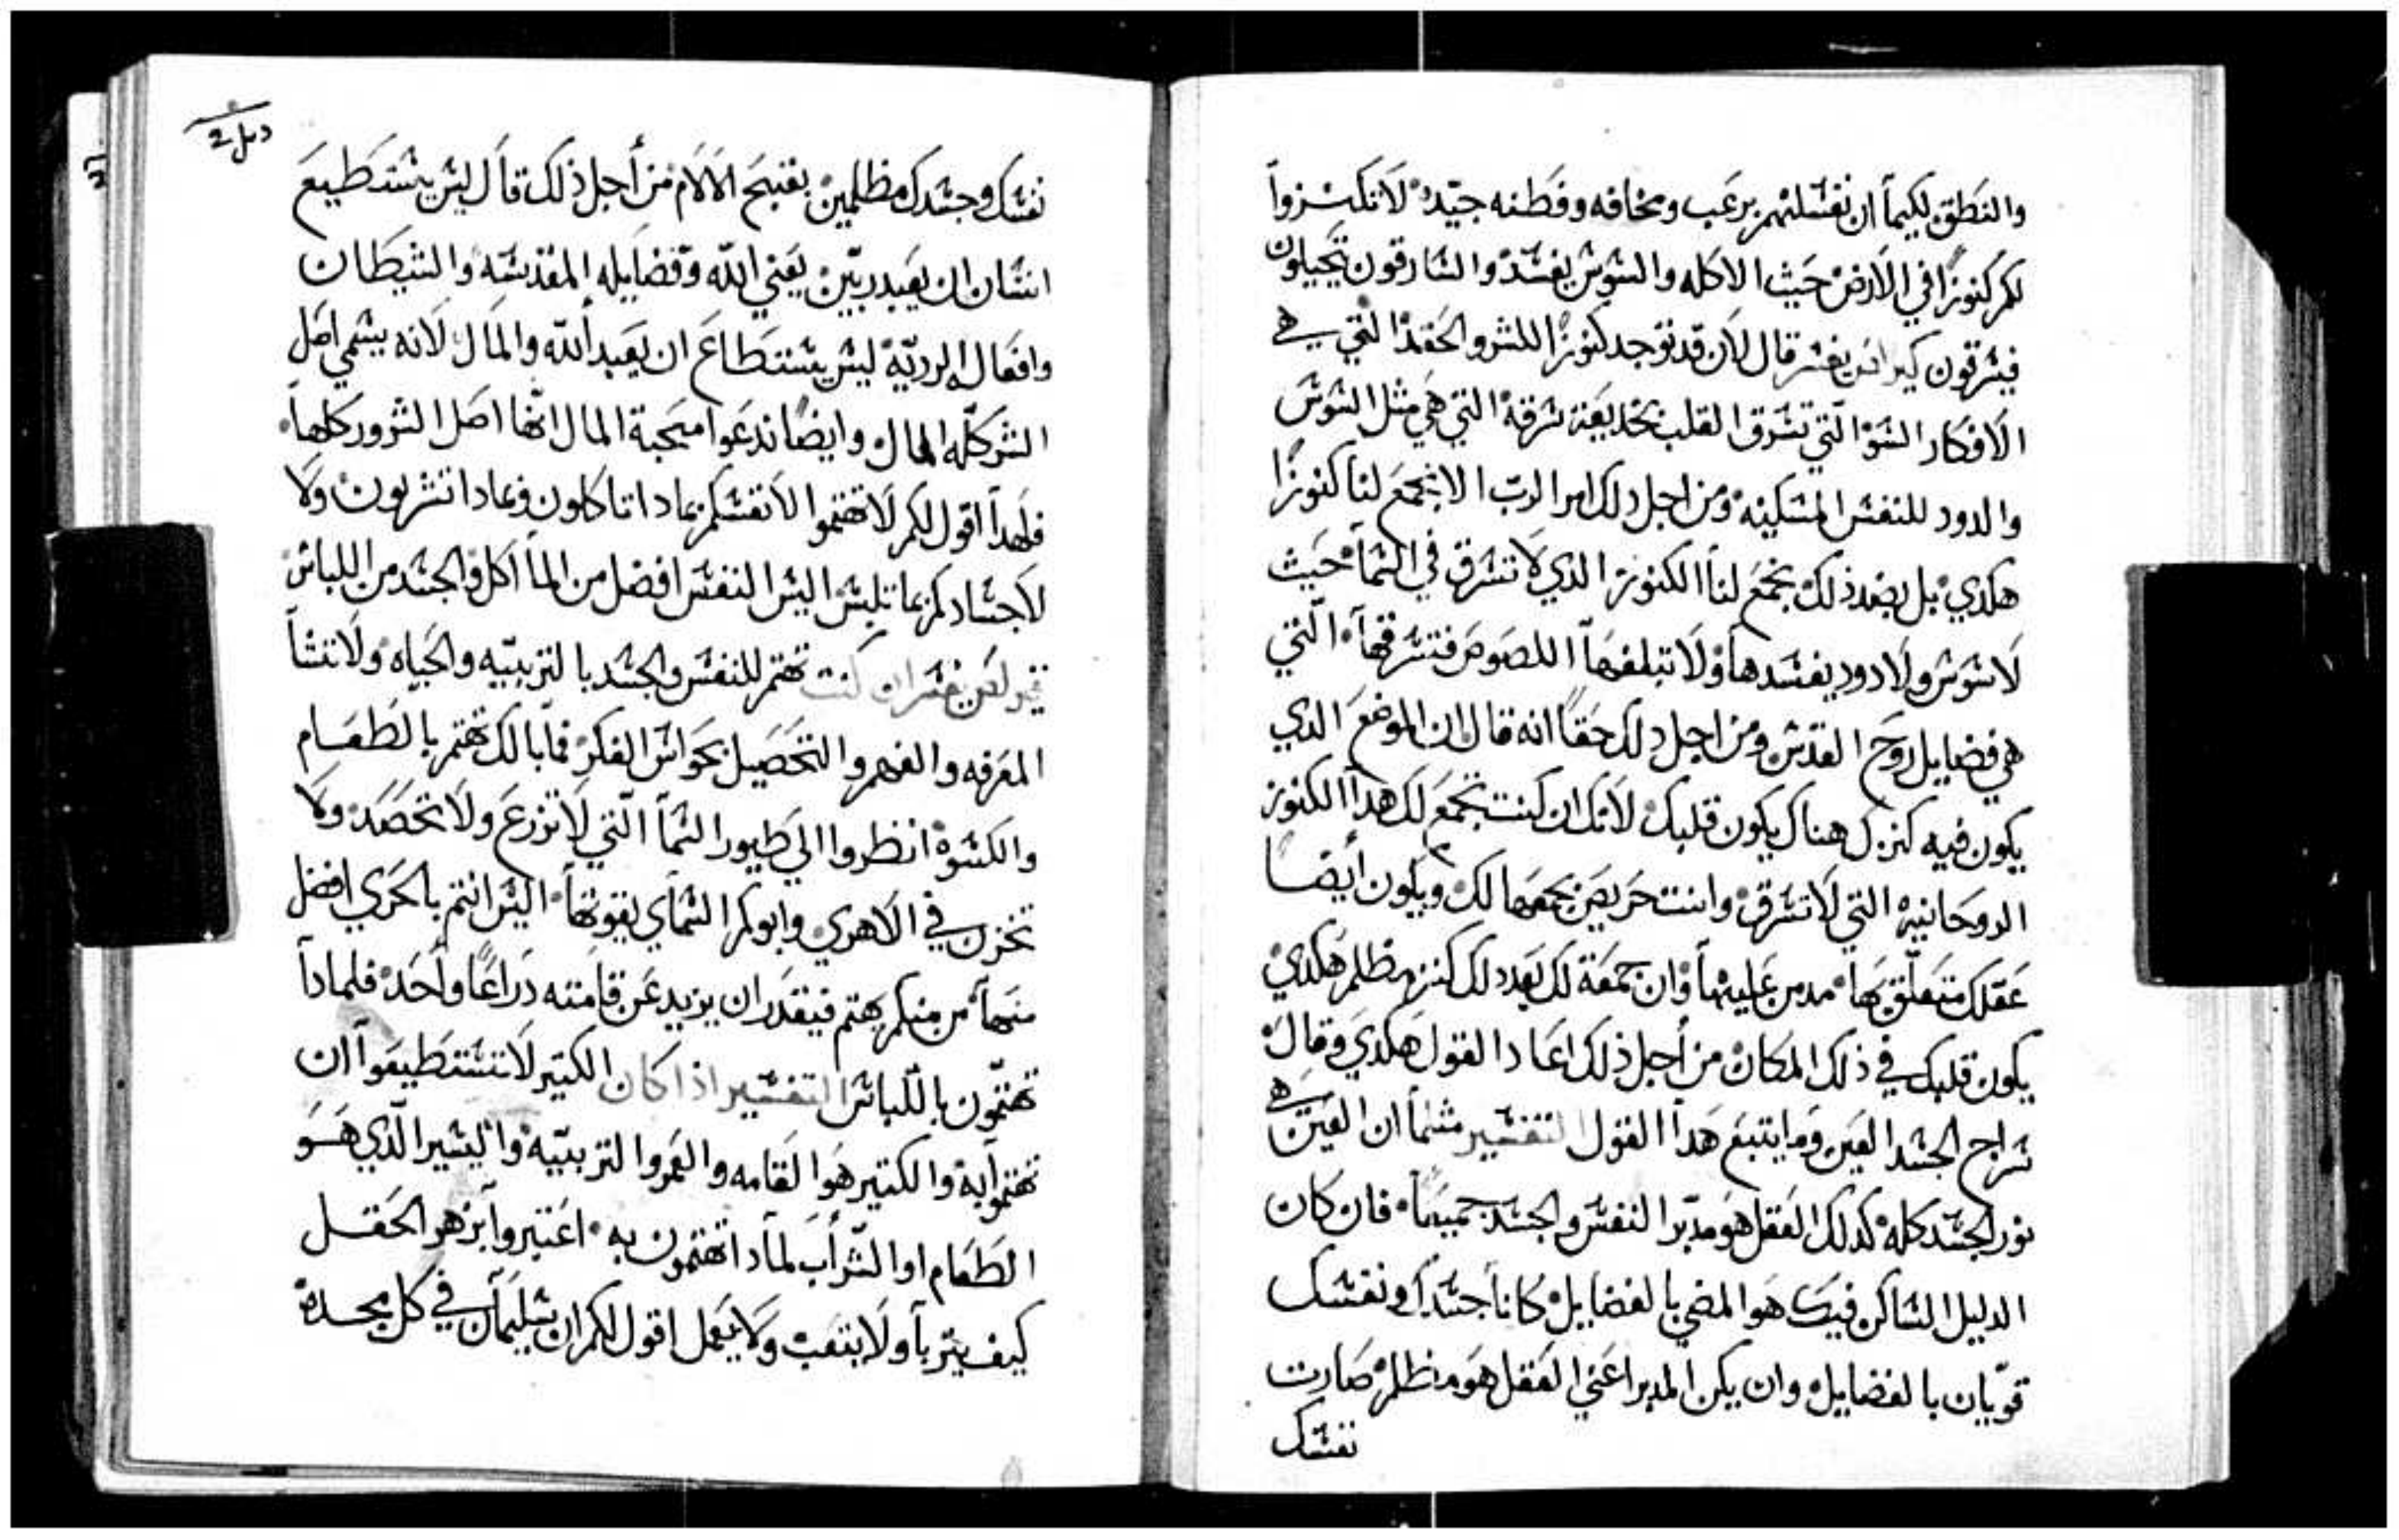 والنطق لكيما ان نفشلهم برعب ومخافه وفطنه جيده لا تكنزوا
لكم كنوزا في الارض حيث الاكله والشوش يفشد والشارقون يتحيلون
فيشرقون قال لان قد توجد كنوزا للشر والحقد التي هي
الافكار الشو التي تشرق القلب بخديعة شرقه التي هي مثل الشوش
والدود للنفش المشكينه ومن اجل دلك امر الرب الا نجمع لنا كنوزا
هكدي بل بضد ذلك نجمع لنا الكنوز الذي لا تشرق في الشمآ حيث
لا شوش ولا دود يفشدها ولا تبلغها اللصوص فتشرقها التي
هي فضايل روح القدش ومن اجل دلك حقا انه قال ان الموضع الدي
يكون فيه كنزك هناك يكون قلبك لانك ان كنت تجمع لك هدا الكنوز
الروحانيه التي لا تشرق وانت حريص بجمعها لك ويكون ايضا
عقلك متعلق بها مدمن عليها وان جمعة لك بعد دلك كنز مظلم هكدي
يكون قلبك في ذلك المكان من أجل ذلك اعادا القول هكدي وقال
شراج الجشد العين وما يتبع هدا القول التفشير مثلما ان العين هي
نور الجشد كله كدلك العقل هو مدبر النفش والجشد جميعا فان كان
الدليل الشاكن فيك هو المضي بالفضايل كانا جشدك ونفشك
قويان بالفضايل وان يكن المدبر اعني العقل هو مظلم صارت
نفشك
نفشك وجشدك مظلمين بقبيح الالام من أجل ذلك قال ليش يشتطيع
انشان ان يعبد ربين يعني الله وفضايله المقدشه والشيطان
وافعاله الرديه ليش يشتطاع ان يعبد الله والمال لانه يشمي اصل
الشر كله المال وايضا ندعوا محبة المال انها اصل الشرور كلها
فلهدا اقول لكم لا تهتموا لانفشكم بمادا تاكلون وبمادا تشربون ولا
لاجشادكم بما تلبش اليش النفش افضل من المآكل والجشد من اللباش
ان كنت تهتم للنفش والجشد بالتربيه والحياه ولا تنشا
المعرفه والفهم والتحصيل بحواش الفكر فما بالك تهتم بالطعام
والكشوه انظروا الي طيور الشمآ التي لا تزرع ولا تحصد ولا
تخزن في الاهري وابوكم الشماي يقوتها اليش انتم بالحري افضل
منها من منكم يهتم فيقدر ان يزيد عن قامته دراعا واحده فلمادا
تهتمون باللباش التفشير اذا كان الكتير لا تشتطيعوا ان
تهتموا به والكتير هو القامه والعمر والتربيه واليشير الذي هو
الطعام او الشراب لمادا تهتمون به اعتبروا بزهر الحقل
كيف يتربا ولا يتعب ولا يعمل اقول لكم ان شليمان في كل مجده